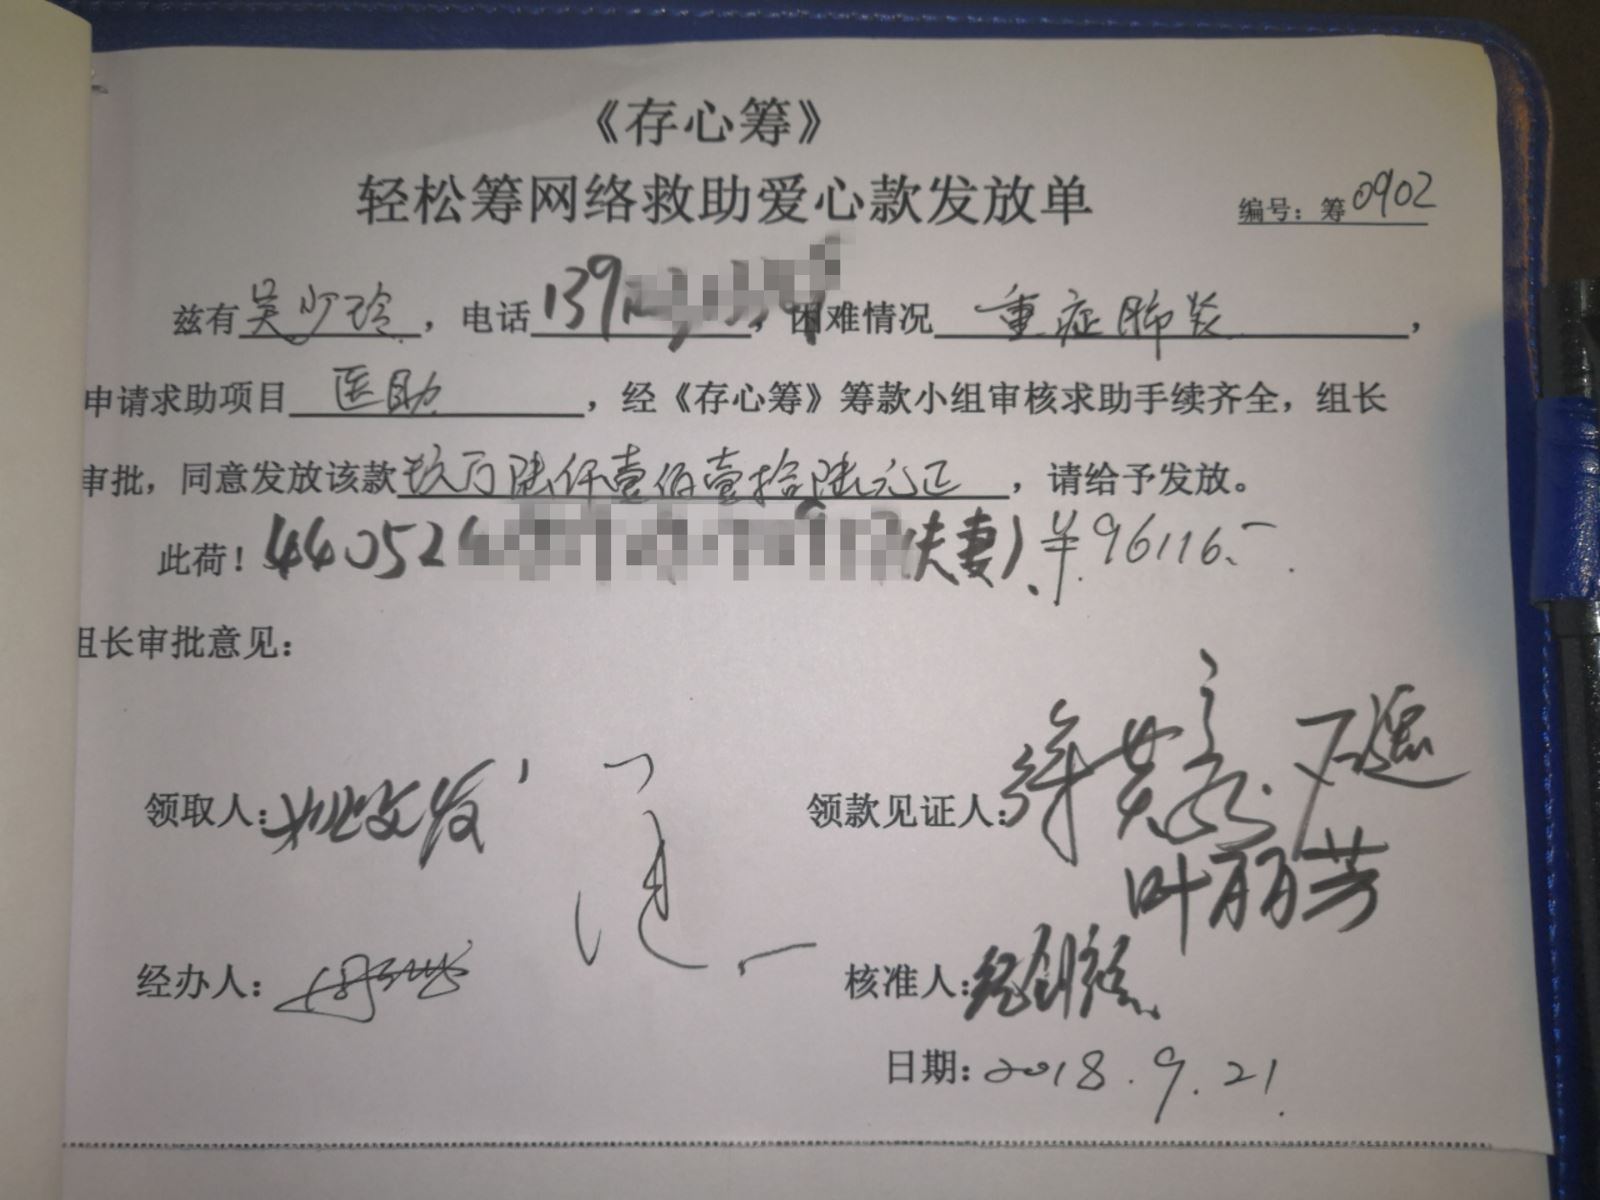 《存心筹》
轻松筹网络救助爱心款发放单
编号：筹0902
兹有吴少玲，电话139，困难情况重症肺炎，
申请求助项目医助，经《存心筹》筹款小组审核求助手续齐全，组长
审批，同意发放该款玖万陆仟壹佰壹拾陆元正，请给予发放。
此荷！44052(夫妻)￥96116.-
组长审批意见：
领取人：姚文发
领款见证人：
叶丽芳
经办人：
核准人：
日期：2018.9.21